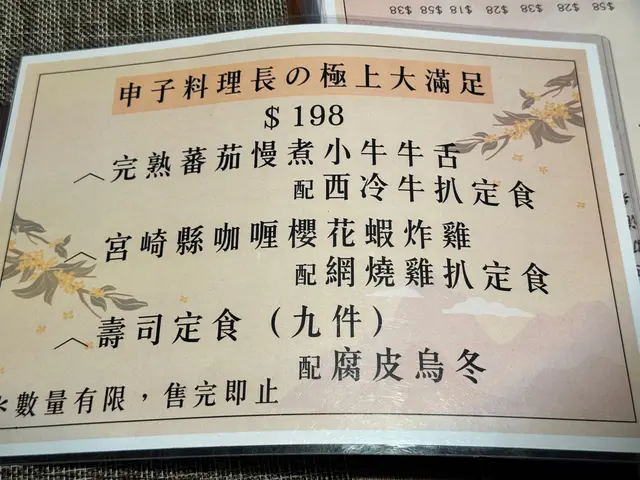 $58 $28 $38 $28 $18 $58 $38
申子料理長の極上大滿足
$198
︿完熟蕃茄慢煮小牛牛舌
配西冷牛扒定食
︿宮崎縣咖喱櫻花蝦炸雞
配網燒雞扒定食
︿壽司定食（九件）
配腐皮烏冬
＊數量有限，售完即止